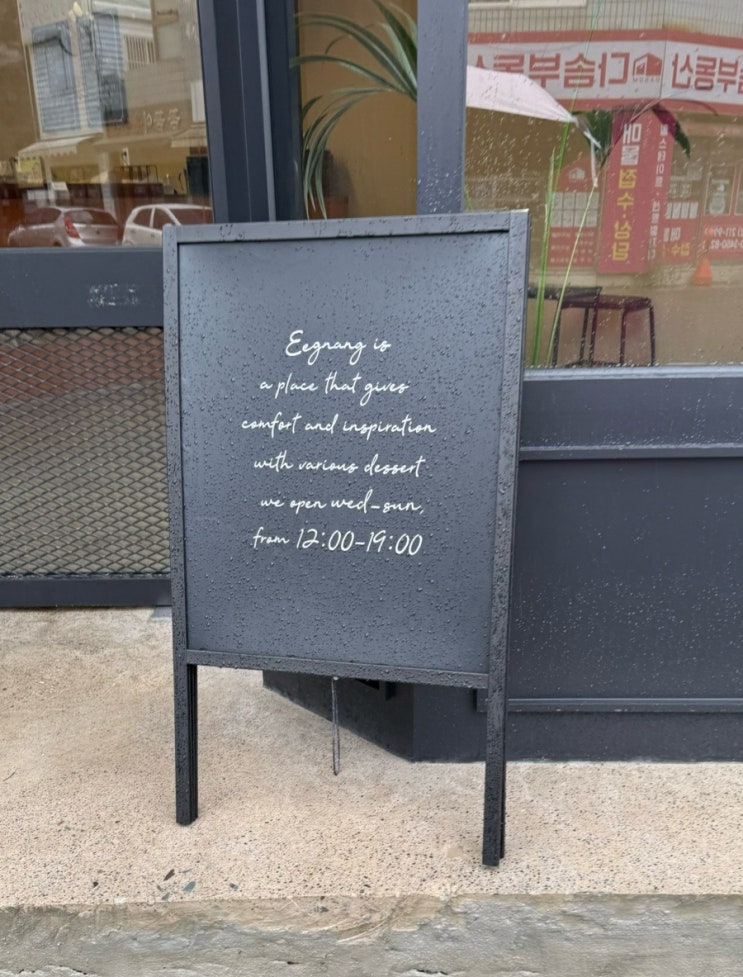 Eegnang is
a place that gives
comfort and inspiration
with various dessert
we open wed-sun,
from 12:00-19:00
다솜부동산
매물접수·상담